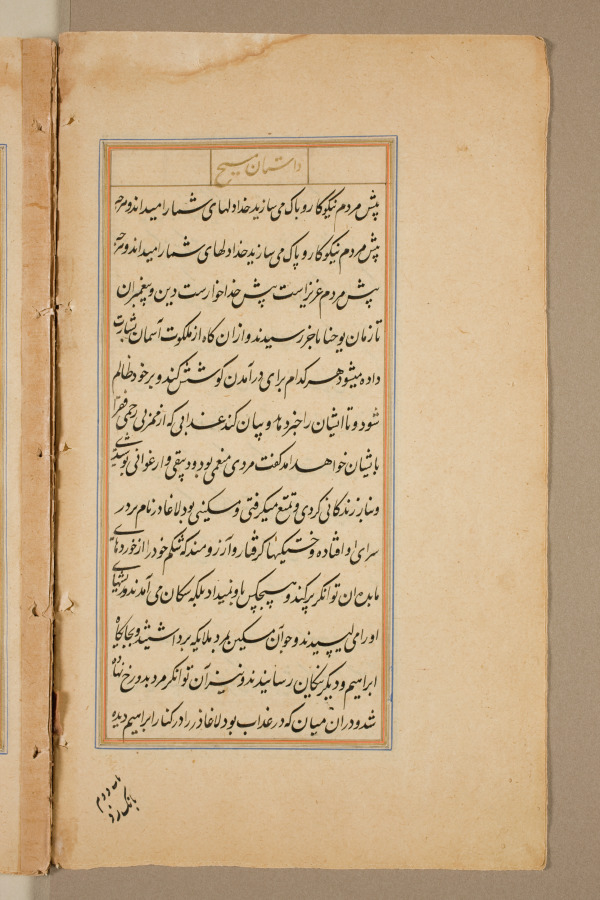 داستان مسیح
پیش مردم نیکوکار و پاک می سازید خدا دلهای شما را میداند و هرچه
پیش مردم نیکوکار و پاک می سازید خدا دلهای شما را میداند و هرچه
پیش مردم عزیز است پیش خدا خوار ست دین و پیغمبران
تا زمان یوحنا بآخر رسیدند و ازان کاه از ملکوت آسمان بشارت
داده میشود هر کدام برای در آمدن کوشش کند و بر خود ظالم
شود و تا ایشان را خبر دهد و بیان کند عذابی که از بی رحمی فقرا
باشیان خواهد آمد کفت مردی منعمی بود و دیبقی و ارغوانی پوشیدی
و بناز زندکانی کردی و تمتع میکرفتی و مسکینی بود لاغاذر نام بر در
سرای او افتاده و خستکیها کرفتار و آرزومند که شکم خود را از خوردهای
مایده آن توانکر پر کند و هیچکس باو نمیداد بلکه سکان می آمدند و ریشهای
او را می لیسیدند و چو آن مسکین بمرد ملایکه برداشتند و بجایکاه
ابراهیم و دیکر نیکان رسانیدند و نیز آن توانکر مرد بدوزخ نهاده
شد و دران میان که در عذاب بود لاغاذر را در کنار ابراهیم دیده
بانک زد